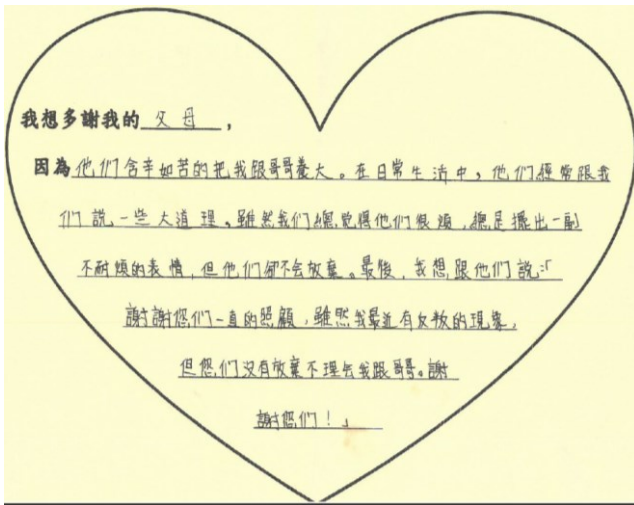 我想多謝我的父母，
因為他们含辛如苦的把我跟哥哥養大。在日常生活中，他们經常跟我
们說一些大道理。雖然我们總覺得他们很煩，總是擺出一副
不耐煩的表情，但他们卻不会放棄。最後，我想跟他们說：「
謝謝您们一直的照顧，雖然我最近有反叛的現象，
但您们沒有放棄不理会我跟哥哥。謝
謝您们！」